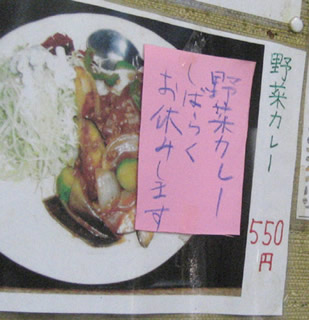 野菜カレー
550
円
野菜カレー
しばらく
お休みします